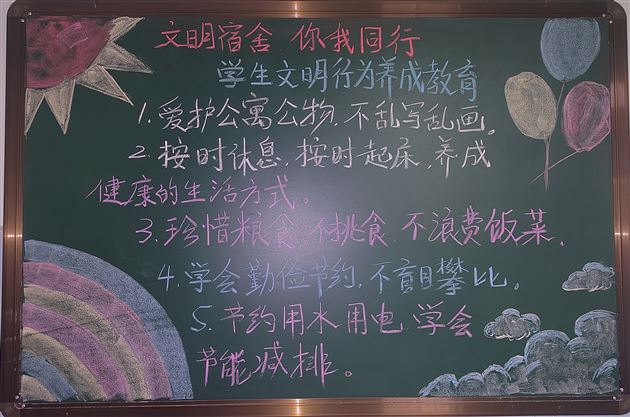 文明宿舍 你我同行
学生文明行为养成教育
1.爱护公寓公物,不乱写乱画。
2.按时休息,按时起床,养成
健康的生活方式。
3.珍惜粮食,不挑食,不浪费饭菜.
4.学会勤俭节约,不盲目攀比。
5.节约用水用电,学会
节能减排。